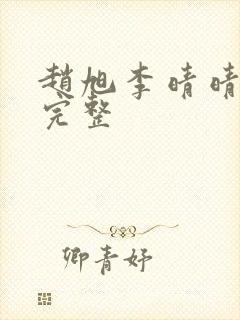 趙旭李晴晴
完整
卿青妤